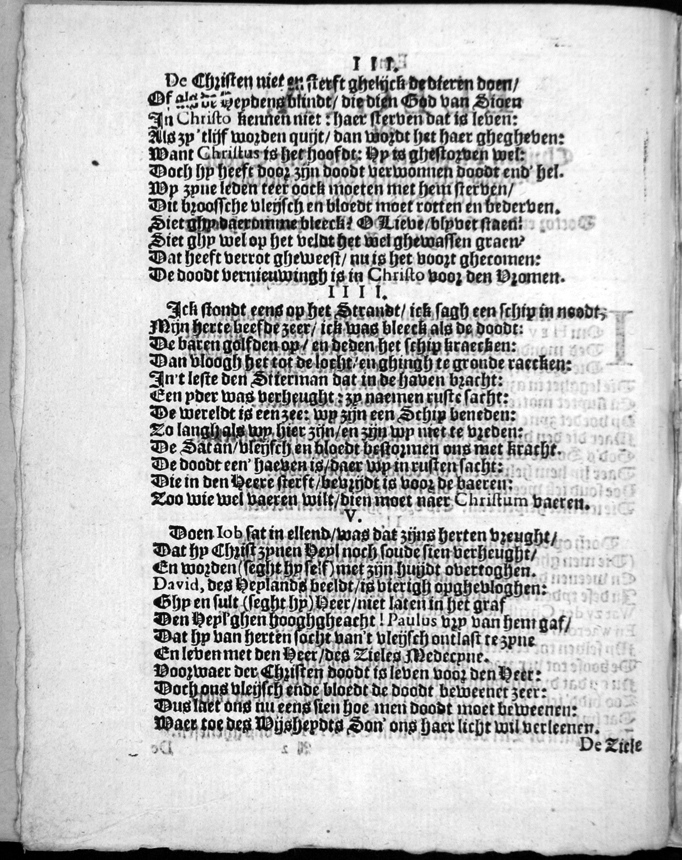 III.
De Christen niet en sterft ghelijck de dieren doen/
Of als de Heydens blindt/ die dien God van Sioen
In Christo kennen niet: haer sterven dat is leven:
Als zy 'tlijf worden quijt/ dan wordt het haer ghegheven:
Want Christus is het hoofdt: Hy is ghestorven wel:
Doch hy heeft door zijn doodt verwonnen doodt end' hel.
Wy zyne leden teer oock moeten met hem sterven/
Dit broossche vleysch en bloedt moet rotten en bederven.
Siet ghy daeromme bleeck? O Lieve/ blyver staen!
Siet ghy wel op het veldt het wel ghewassen graen?
Dat heeft verrot gheweest/ nu is het voort ghecomen:
De doodt vernieuwingh is in Christo voor den Vromen.
IIII.
Ick stondt eens op het Strandt/ ick sagh een schip in noodt,
Mijn herte beefde zeer/ ick was bleeck als de doodt:
De baren golfden op/ en deden het schip kraecken:
Dan vloogh het tot de locht/ en ghingh te gronde raecken:
In't leste den Stierman dat in de haven bracht:
Een yder was verheught: zy naemen ruste sacht:
De wereldt is een zee: wy zijn een Schip beneden:
Zo langh als wy hier zijn/ en zijn wy niet te vreden:
De Satan/ vleysch en bloedt bestormen ons met kracht.
De doodt een' haeven is/ daer wy in rusten sacht:
Die in den Heere sterft/ bevrijdt is voor de baeren:
Zoo wie wel vaeren wilt/ dien moet naer Christum vaeren.
V.
Doen Iob sat in ellend/ was dat zijns herten vreught/
Dat hy Christ zynen Heyl noch soude sien verheught/
En worden (seght hy self) met zijn huydt overtoghen.
David, des Heylands beeldt/ is vierigh opghevloghen:
Ghy en sult (seght hy) Heer/ niet laten in het graf
Den Heyl'ghen hooghgheacht! Paulus vry van hem gaf/
Dat hy van herten socht van't vleysch ontlast te zyne
En leven met den Heer/ des Zieles Medecyne.
Voorwaer der Christen doodt is leven voor den Heer:
Doch ons vleysch ende bloedt de doodt beweenet zeer:
Dus laet ons nu eens sien hoe men doodt moet beweenen:
Waer toe des Wijsheydts Son' ons haer licht wil verleenen.
De Ziele